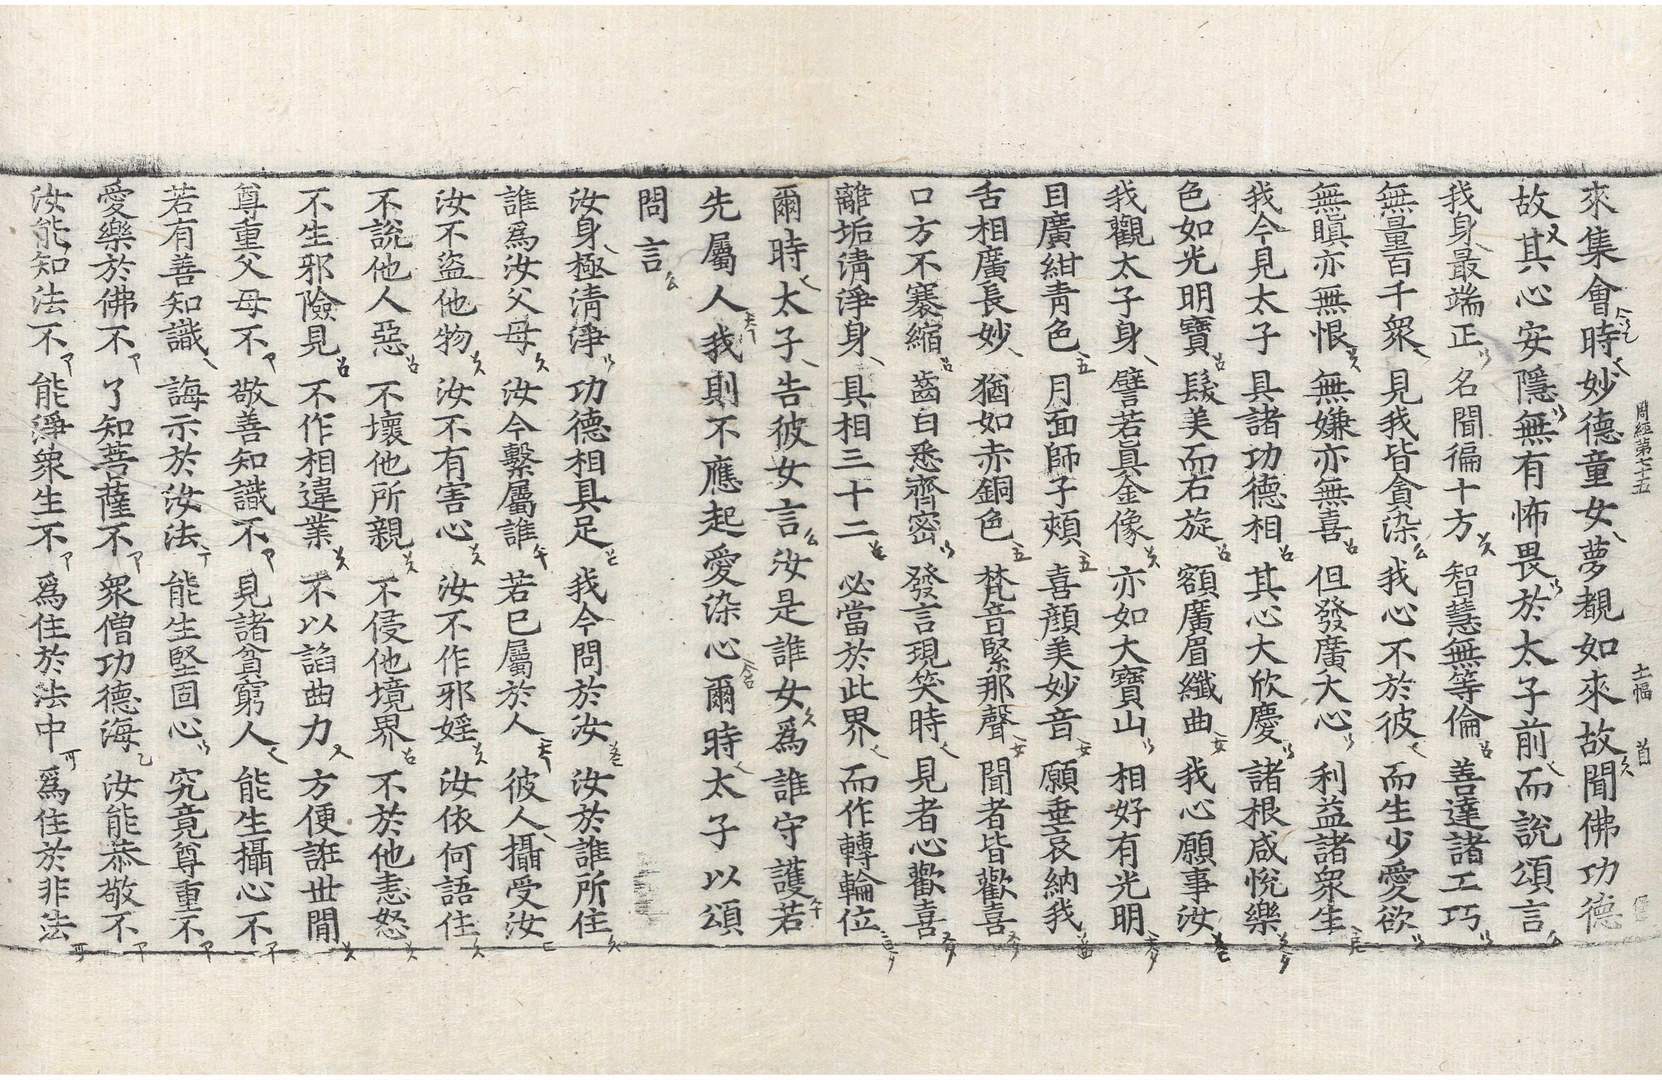 來集會時妙德童女夢覩如來故聞佛功德
周經第七十五
故其心安隱無有怖畏於太子前而說頌言
我身最端正 名聞徧十方 智慧無等倫 善達諸工巧
無量百千眾 見我皆貪染 我心不於彼 而生少愛欲
無瞋亦無恨 無嫌亦無喜 但發廣大心 利益諸眾生
我今見太子 具諸功德相 其心大欣慶 諸根咸悅樂
色如光明寶 髮美而右旋 額廣眉纖曲 我心願事汝
我觀太子身 譬若真金像 亦如大寶山 相好有光明
目廣紺青色 月面師子頰 喜顏美妙音 願垂哀納我
舌相廣長妙 猶如赤銅色 梵音緊那聲 聞者皆歡喜
口方不褰縮 齒白悉齊密 發言現笑時 見者心歡喜
離垢淸淨身 具相三十二 必當於此界 而作轉輪位
爾時太子告彼女言汝是誰女為誰守護若
先屬人我則不應起愛染心爾時太子以頌
問言
汝身極清淨 功德相具足 我今問於汝 汝於誰所住
誰為汝父母 汝今繫屬誰 若已屬於人 彼人攝受汝
汝不盜他物 汝不有害心 汝不作邪婬 汝依何語住
不說他人惡 不壞他所親 不侵他境界 不於他恚怒
不生邪險見 不作相違業 不以諂曲力 方便誑世間
尊重父母不 敬善知識不 見諸貧窮人 能生攝心不
若有善知識 誨示於汝法 能生堅固心 究竟尊重不
愛樂於佛不 了知菩薩不 眾僧功德海 汝能恭敬不
汝能知法不 能淨眾生不 為住於法中 為住於非法